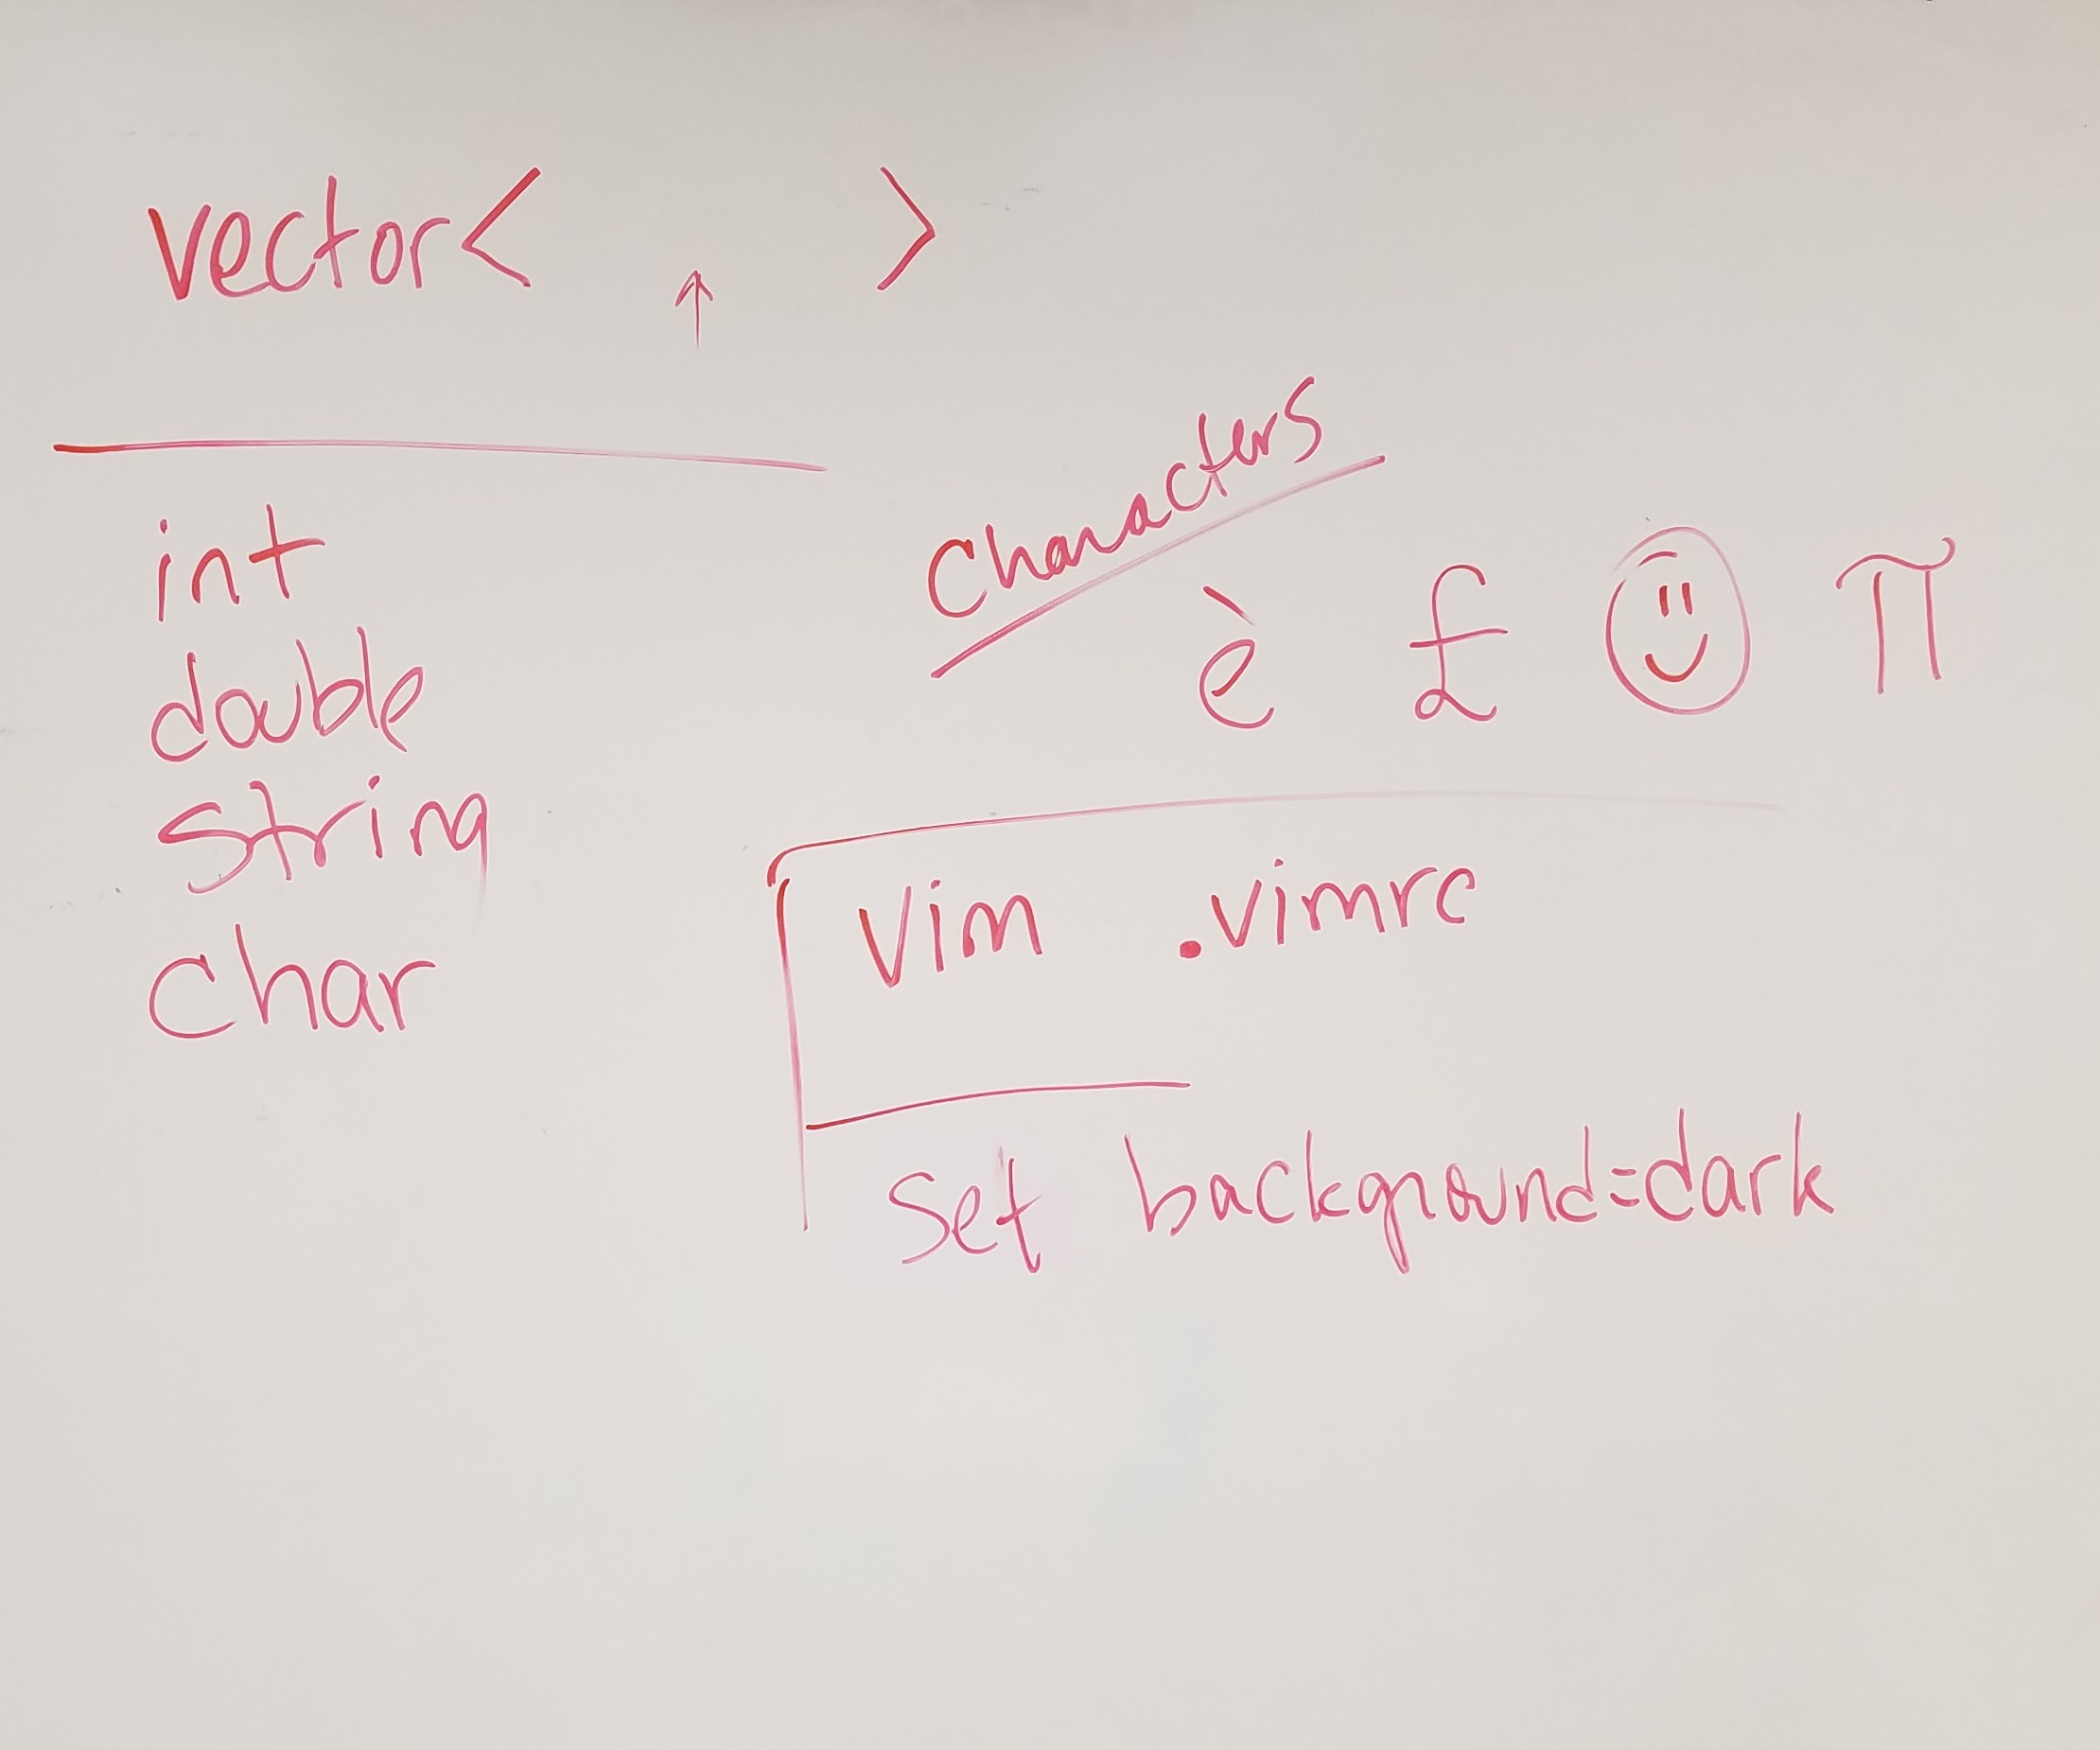 vector<       >
↑
int
double
string
char
Characters
è £ ☺ π
vim .vimrc
set background=dark